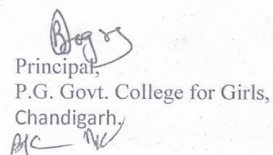 Principal,
P.G. Govt. College for Girls,
Chandigarh.